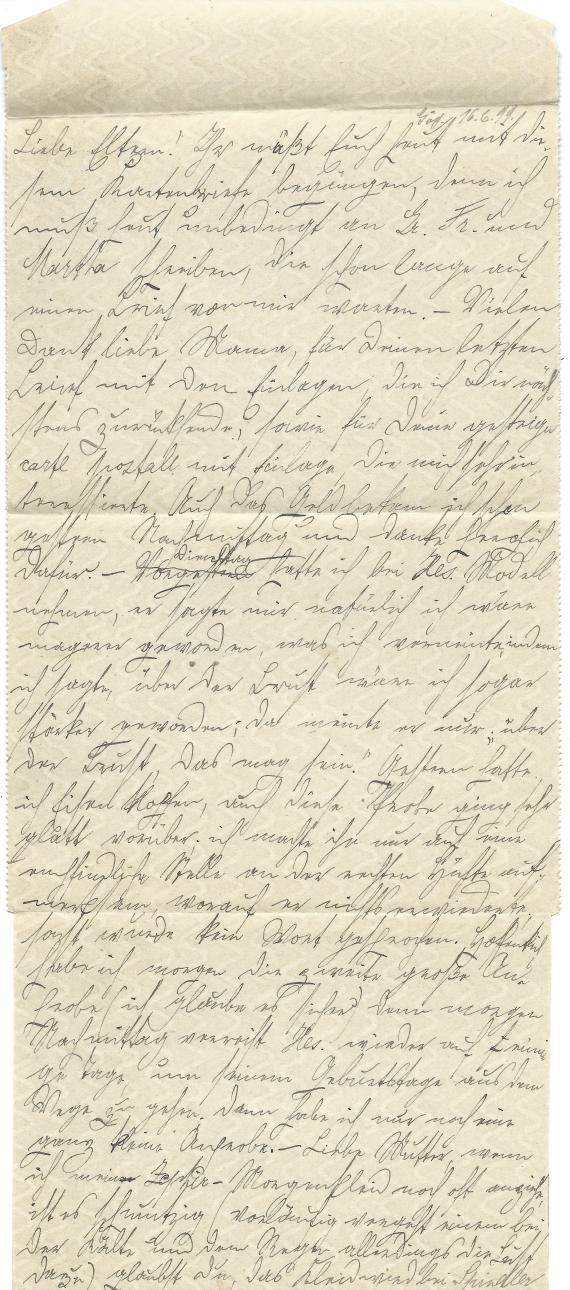 Gög. 16.6.99.
Liebe Eltern! Ihr müßt Euch heut mit die-
sem Kartenbriefe begnügen, denn ich
muß heut unbedingt an G. Fr. und
Martha schreiben, die schon lange auf
einen Brief von mir warten. – Vielen
Dank liebe Mama, für Deinen letzten
Brief mit den Einlagen, die ich Dir näch-
stens zurücksende, sowie für Deine gestrige
mit Einlage, die mich sehr in-
teressierte. Auch das Geld bekam ich schon
gestern Nachmittag und danke herzlich
dafür. – Dienstag hatte ich bei Hes. Modell
nehmen, er sagte mir natürlich ich wäre
magerer geworden, was ich verneinte, indem
ich sagte, über der Brust wäre ich sogar
stärker geworden; da meinte er nur: „über
der Brust, das mag sein." Gestern hatte
ich Eisen klopfen, auch diese Probe ging sehr
glatt vorüber, ich machte ihn nur auf eine
empfindliche Stelle an der rechten Hüfte auf-
merksam, worauf er nichts erwiederte,
sonst wurde kein Wort gesprochen. Hoffentlich
habe ich morgen die zweite große An-
probe (ich glaube es sicher) denn morgen
Nachmittag verreist Hes. wieder auf eini-
ge Tage um seinem Geburtstage aus dem
Wege zu gehen. Dann habe ich nur noch eine
ganz kleine Anprobe. – Liebe Mutter, wenn
ich mein Zephir-Morgenkleid noch oft anziehe,
ist es schmutzig (vorläufig vergeht einem bei
der Kälte und dem Regen allerdings die Lust
dazu) glaubst Du, das Kleid wird bei Spindler